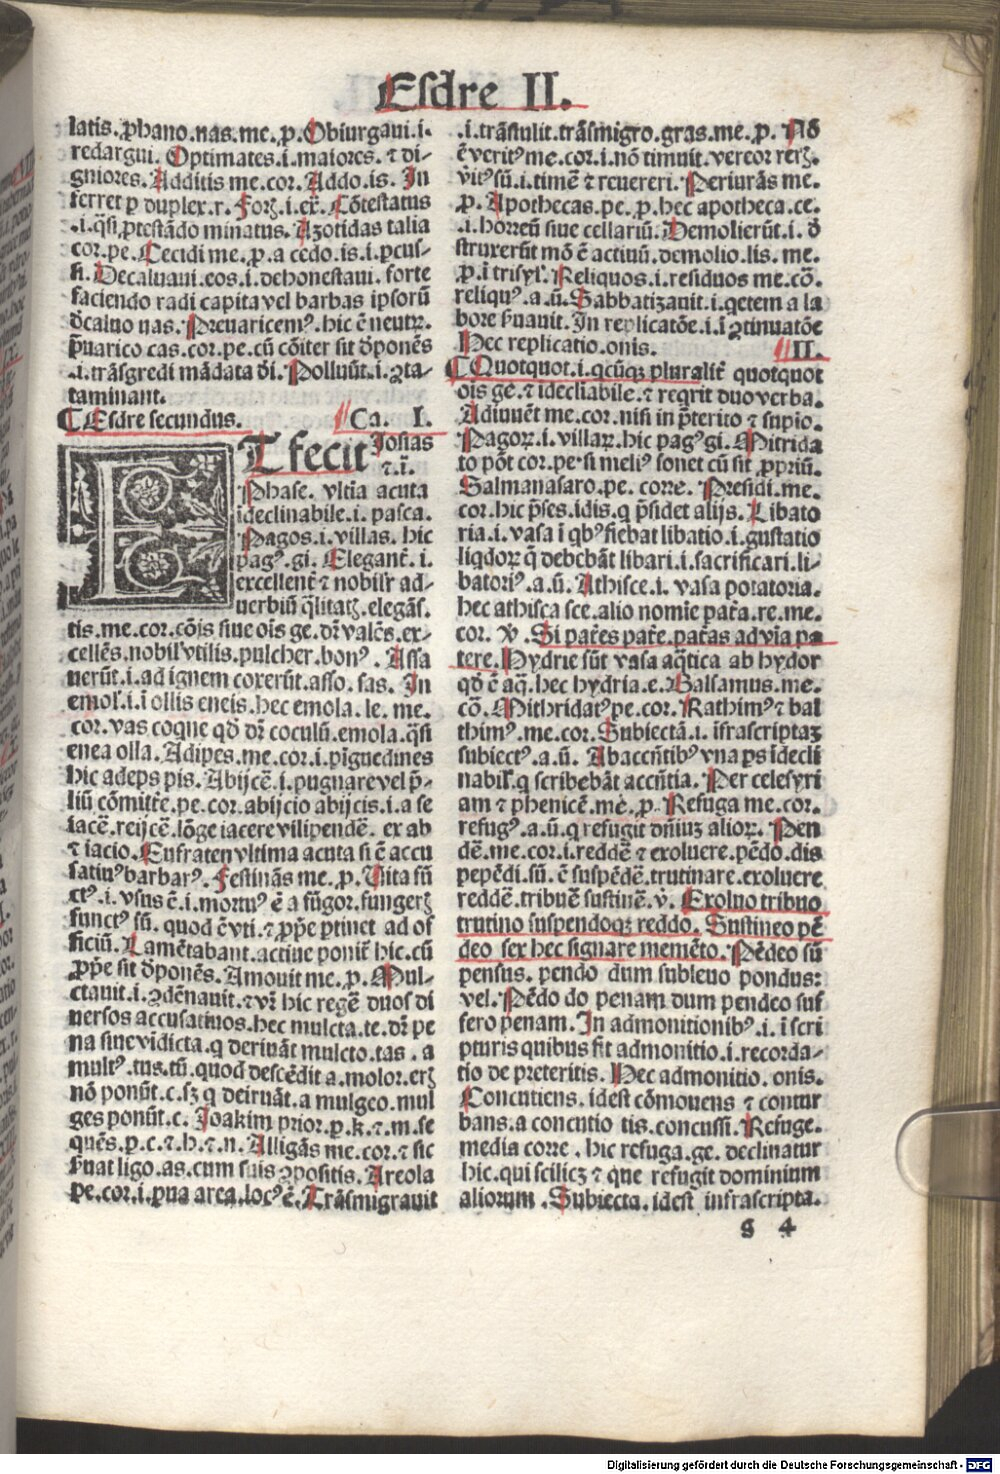 Esdre II.
latis. ꝓphano.nas.me.ꝓ. Obiurgaui.i.
redargui. Optimates.i.maiores. ⁊ di-
gniores. Additis me.cor. Addo.is. In
ferret p duplex.r. Forꝫ.i.ex̄. Cōtestatus
.i.q̄si ꝓtestādo minatus. Azotidas talia
cor.pe. Cecidi me.ꝓ.a cedo.is.i.ꝑcus-
si. Decaluaui.eos.i.dehonestaui. forte
faciendo radi capita vel barbas ipsorū
d̄caluo nas. Preuaricemꝰ.hic ē neutꝝ.
p̄uarico cas.cor.pe.cū cōiter sit d̄ponēs
.i.trāsgredi mādata d̄i. Polluūt.i.ꝯta-
taminant.
⸿ Esdre secundus. Ca. I.
ET fecit Josias
⁊.ī.
Phase. vltia acuta
ideclinabile.i. pasca.
Pagos.i. villas. hic
pagꝰ.gi. Elegant̄.i.
excellent̄ ⁊ nobilit̄ ad-
uerbiū q̄litatꝫ.elegās.
tis.me.cor.cōis siue oīs ge.dr̄ valēs.ex-
cellēs.nobil'vtilis.pulcher.bonꝰ. Assa
uerūt.i.ad ignem coxerūt.asso.sas. In
emol'.i.ī ollis eneis.hec emola.le.me.
cor.vas coque qd̄ dr̄ coculū.emola.q̄si
enea olla. Adipes.me.cor.i.pīguedines
hic adeps pis. Abijcē.i.pugnare vel p̄-
liū cōmittē.pe.cor.abijcio abijcis.i.a se
iacē.reijcē.lōge iacere vilipendē. ex ab
⁊ iacio. Eufraten vltima acuta si ē accu
satiuꝰ barbarꝰ. Festināns me.ꝓ. Vsita sū
ctꝰ.i.vsus ē.i.mortuꝰ ē a fūgor.fungerꝫ
functꝰ sū. quod ē vti.⁊ ꝓpe ptinet ad of
ficiū. Lamētabant.actiue ponit̄ hic.cū
ꝓpe sit d̄ponēs. Amouit me.ꝓ. Mul-
ctauit.i.ꝯdēnauit.⁊ vr̄ hic regē duos di
uersos accusatiuos.hec mulcta.te.dr̄ pe
na siue vidicta.q deriuāt mulcto.tas.a
multꝰ.tus.tū.quod descēdit a.molor.erꝫ
nō ponūt.c.sꝫ q deiruāt.a mulgeo.mul
ges ponūt.c. Joakim prior.p.k.⁊.m.se
quēs.p.c.⁊.h.⁊.n. Alligās me.cor.⁊ sic
s̄uat ligo.as.cum suis ꝯpositis. Areola
pe.cor.i.ꝑua area.locꝰ ē. Trāsmigrauit
.i.trāstulit.trāsmigro.gras.me.ꝓ. Nō
ē veritꝰ me.cor.i.nō timuit.vereor rerꝫ.
v̄itꝰ sū.i.timē ⁊ reuereri. Periurās me.
ꝓ. Apothecas.pe.ꝓ.hec apotheca.ce.
.i.horreū siue cellariū. Demolierūt.i.d̄
struxerūt mō ē actiuū.demolio.lis.me.
ꝓ.ī trisyl'. Reliquos.i.residuos me.cō.
reliquꝰ.a.ū. Sabbatizauit.i.qetem a la
bore s̄uauit. In replicatōe.i.ī ꝯtinuatōe
Hec replicatio.onis. II.
⸿ Quotquot.i.qcūqꝫ pluralit̄ quotquot
oīs ge.⁊ ideclīabile.⁊ reqrit duo verba.
Adiuuēt me.cor.nisi in p̄terito ⁊ supīo.
Pagoꝝ.i.villaꝝ.hic pagꝰ gi. Mitrida
to pōt cor.pe.si meliꝰ sonet cū sit ꝓpriū.
Salmanasaro.pe. corre. Presidi.me.
cor.hic p̄ses.idis.q p̄sidet alijs. Libato
ria.i. vasa ī qbꝰ fiebat libatio.i.gustatio
liqdoꝝ q̄ debebāt libari.i.sacrificari.li-
batoriꝰ.a.ū. Athisce.i. vasa potatoria.
hec athisca sce.alio nomīe pat̄a.re.me.
cor. v̄. Si pat̄es pat̄e.pat̄as ad vīa pa
tere. Hydrie sūt vasa aq̄tica ab hydor
qd̄ ē aq̄.hec hydria.e. Balsamus.me.
cō. Mithridatꝰ pe.cor. Rathimꝰ ⁊ bal
thimꝰ.me.cor. Subiectā.i. īfrascriptaꝫ
subiectꝰ.a.ū. Ab accn̄tibꝰ vna ps ideclī
nabil'.q scribebāt accn̄tia. Per celesyri
am ⁊ phenicē.me.ꝓ. Refuga me.cor.
refugꝰ.a.ū.q refugit dn̄iuꝫ alioꝝ. Pen
dē.me.cor.i.reddē ⁊ exoluere.pēdo.dis
pependi.sū. ē suspēdē.trutinare.exoluere
reddē.tribuē sustinē.v̄. Exoluo tribuo
trutino suspendoqꝫ reddo. Sustineo pē
deo sex hec signare memēto. Pēdeo sū
pensus. pendo dum subleuo pondus:
vel. Pēdo do penam dum pendeo suf
fero penam. In admonitionibꝰ.i. ī scri
pturis quibus fit admonitio.i.recorda-
tio de preteritis. Hec admonitio. onis.
Concutiens. idest cōmouens ⁊ contur
bans.a concutio tis.concussi. Refuge.
media corre . hic refuga.ge. declinatur
hic.qui scilicꝫ ⁊ que refugit dominium
aliorum . Subiecta. idest infrascripta.
s 4
Digitalisierung gefördert durch die Deutsche Forschungsgemeinschaft - DFG